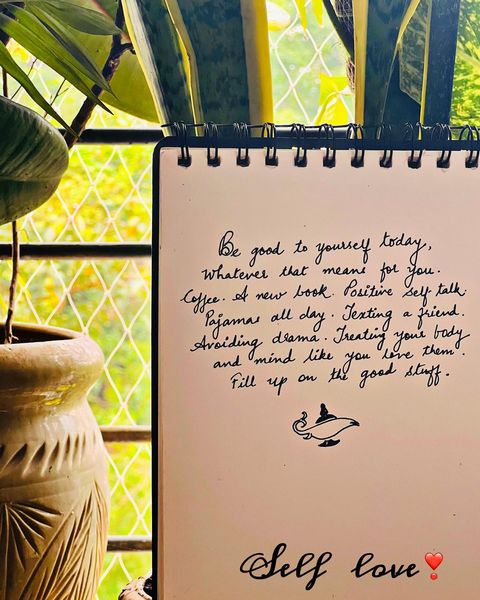 Be good to yourself today,
Whatever that means for you.
Coffee. A new book. Positive self talk.
Pajamas all day. Texting a friend.
Avoiding drama. Treating your body
and mind like you love them.
Fill up on the good stuff.
Self love❣️